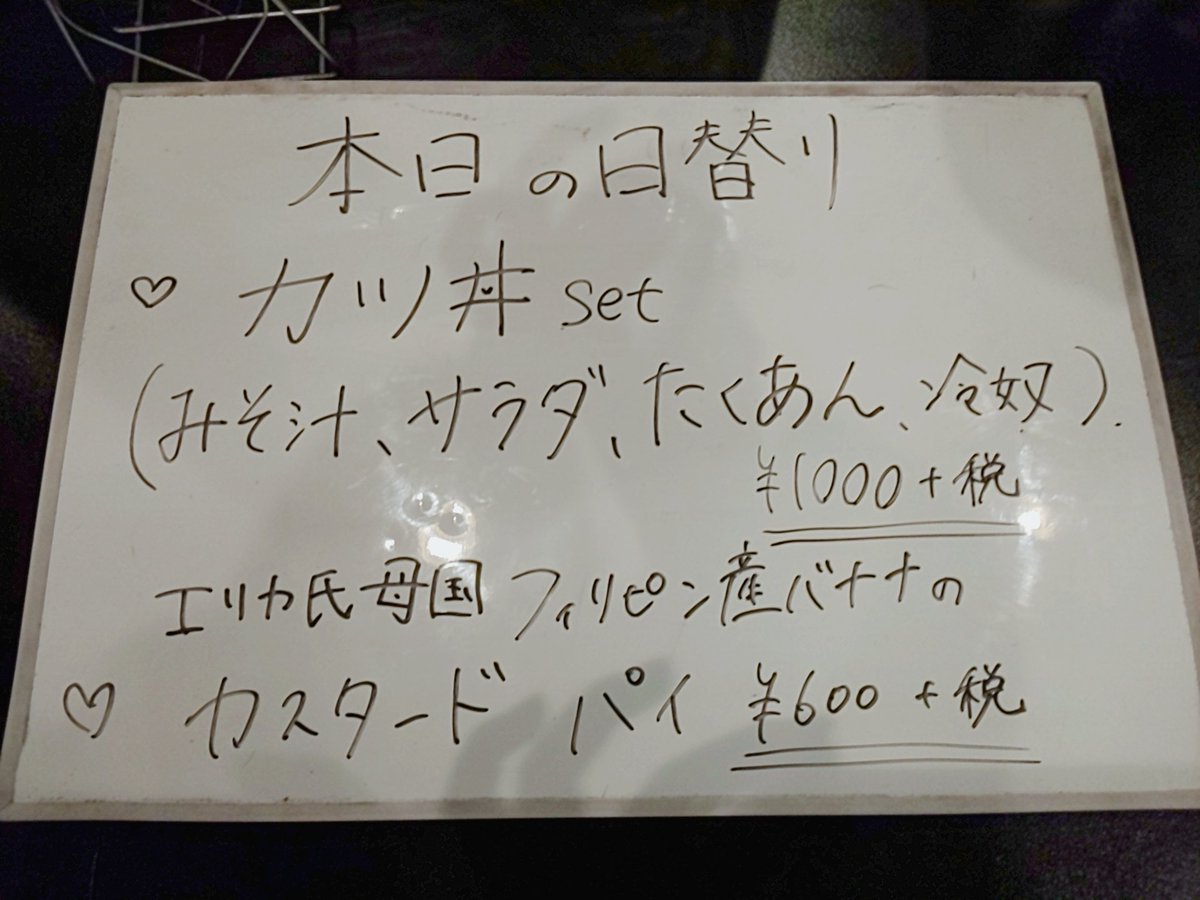 本日の日替り
♡ カツ丼 set
(みそ汁、サラダ、たくあん、冷奴).
¥1000+税
エリカ氏母国フィリピン産バナナの
♡ カスタードパイ ¥600+税